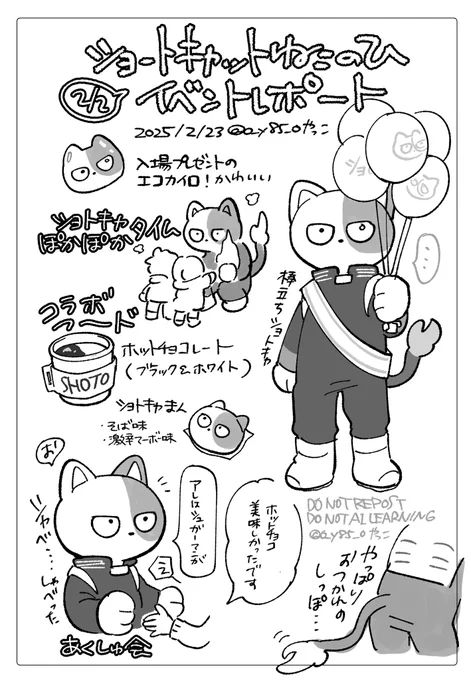 ショートキャットねこのひ
2/2
イベントレポート
2025/2/23 @ay85_0やっこ
入場プレゼントの
エコカイロ!かわいい
ショトキャ
ぽかぽかタイム
コラボ
フード
ホットチョコレート
(ブラック&ホワイト)
SHOTO
ショトキャまん
・そば味
・激辛マーボー味
棒立ちショトキャ
…
DO NOT REPOST
DO NOT AI LEARNING
@ay85_0やっこ
お!
シャベ…
しゃべった
アレはシュガーマンが
ホットチョコ
美味しかったです
あくしゅ会
やっぱり
おつかれの
しっぽ…